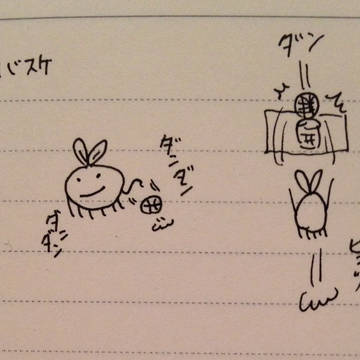 バスケ
ダン
ダン
ダン
ダ
ダン